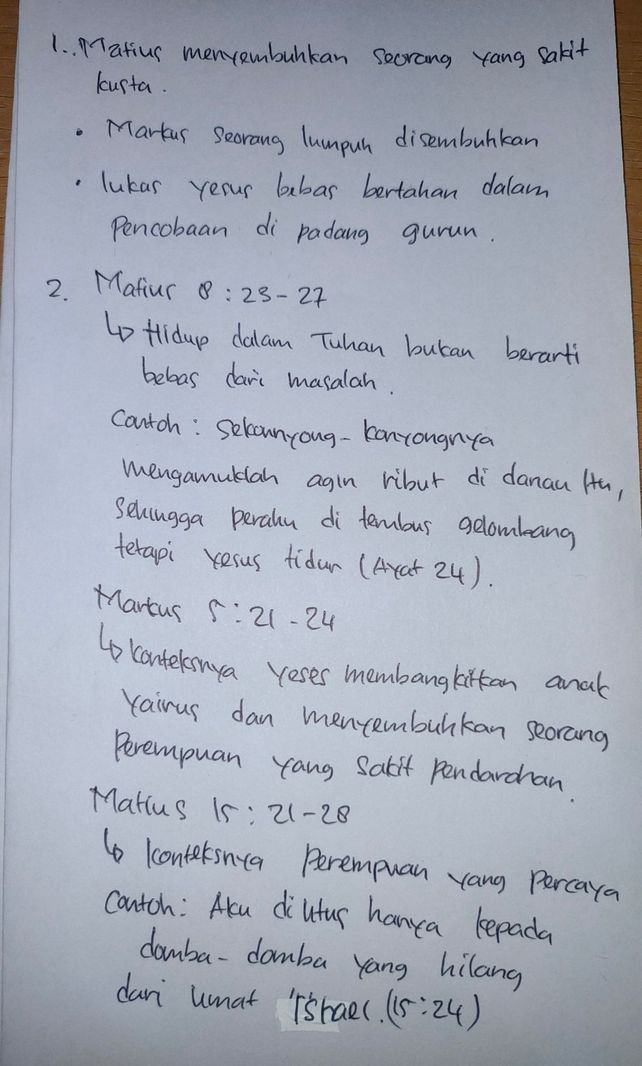 1.. Matius menyembuhkan seorang yang sakit
kusta.
• Markus seorang lumpuh disembuhkan
• lukas yesus bebas bertahan dalam
Pencobaan di padang gurun.
2. Matius 8 : 23 - 27
↳ Hidup dalam Tuhan bukan berarti
bebas dari masalah.
Contoh : Sekounyong - konyongnya
mengamuklah agin ribut di danau itu,
Sehingga perahu di tembus gelombang
tetapi yesus tidur (Ayat 24).
Markus 5 : 21 - 24
↳ konteksnya yeses membangkitkan anak
Yairus dan menyembuhkan seorang
Perempuan yang sakit pendarahan.
Matius 15 : 21 - 28
↳ konteksnya Perempuan yang percaya
Contoh : Aku di utus hanya kepada
domba - domba yang hilang
dari umat Israel. (15 : 24)